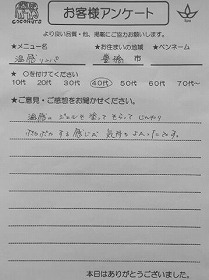 COCONUTS
お客様アンケート
より良い品質・他、掲載にご協力お願いします。
★メニュー名 ★お住まいの地域 ★ペンネーム
温感リンパ 豊橋 市
★ ○を付けてください
10代 20代 30代 40代 50代 60代 70代～
★ご意見・ご感想をお聞かせください。
温感の ジェルを塗って もらって じんわり
ポカポカ する感じが 気持ち よかったです。
本日はありがとうございました。